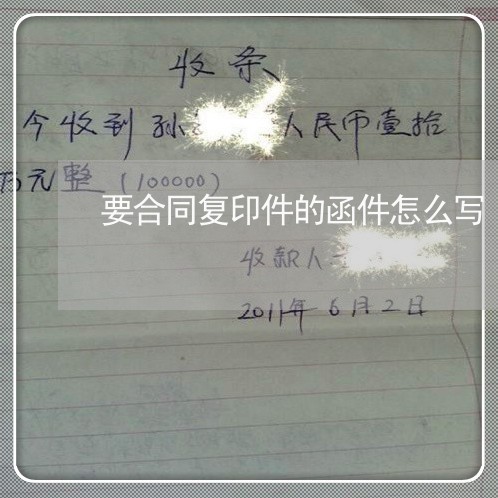 收条
今收到孙 人民币壹拾
万元整(100000)
要合同复印件的函件怎么写
收款人
2011年6月2日